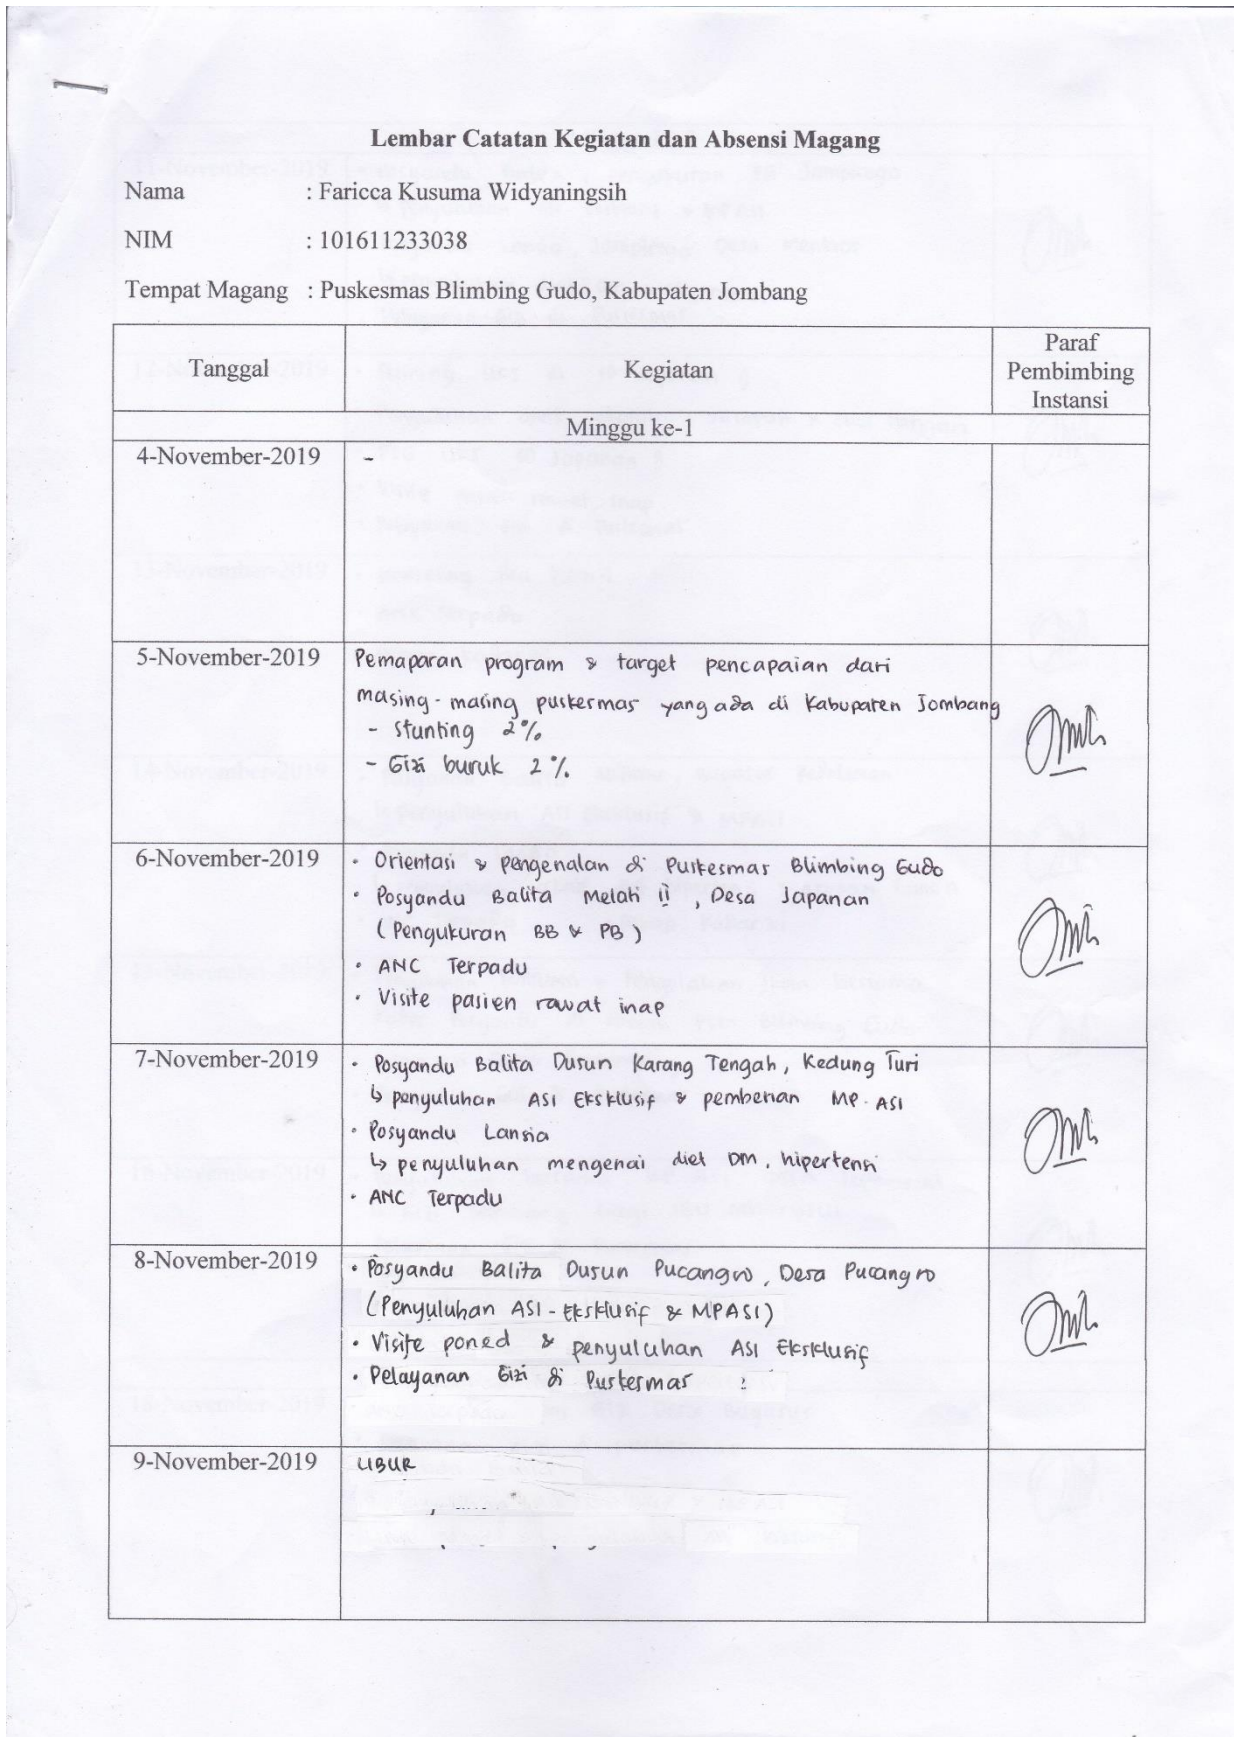 Lembar Catatan Kegiatan dan Absensi Magang
Nama : Faricca Kusuma Widyaningsih
NIM : 101611233038
Tempat Magang : Puskesmas Blimbing Gudo, Kabupaten Jombang
Tanggal Kegiatan Paraf Pembimbing Instansi
Minggu ke-1
4-November-2019 -
5-November-2019 Pemaparan program & target pencapaian dari
masing-masing puskesmas yang ada di Kabupaten Jombang
- Stunting 2%
- Gizi buruk 2%
6-November-2019 • Orientasi & pengenalan di Puskesmas Blimbing Gudo
• Posyandu Balita Melati II, Desa Japanan
(Pengukuran BB & PB)
• ANC Terpadu
• Visite pasien rawat inap
7-November-2019 • Posyandu Balita Dusun Karang Tengah, Kedung Turi
↳ penyuluhan ASI Eksklusif & pemberian MP-ASI
• Posyandu Lansia
↳ penyuluhan mengenai diet DM, hipertensi
• ANC Terpadu
8-November-2019 • Posyandu Balita Dusun Pucangro, Desa Pucangro
(Penyuluhan ASI-Eksklusif & MPASI)
• Visite poned & penyuluhan ASI Eksklusif
• Pelayanan Gizi di Puskesmas
9-November-2019 LIBUR